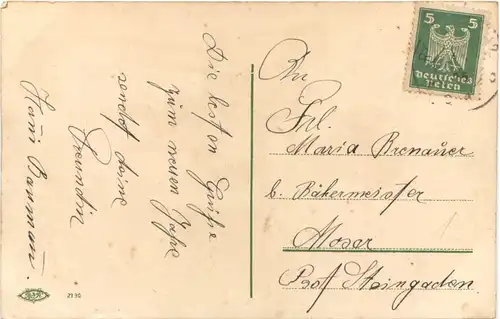 Die besten Grüße
zum neuen Jahre
sendet deine
Freundin
Bauman.
5 5
Deutsches
Reich
An
Frl.
Maria Brenauer
b. Bäkermeister
Moser
Post Steingaden
2190